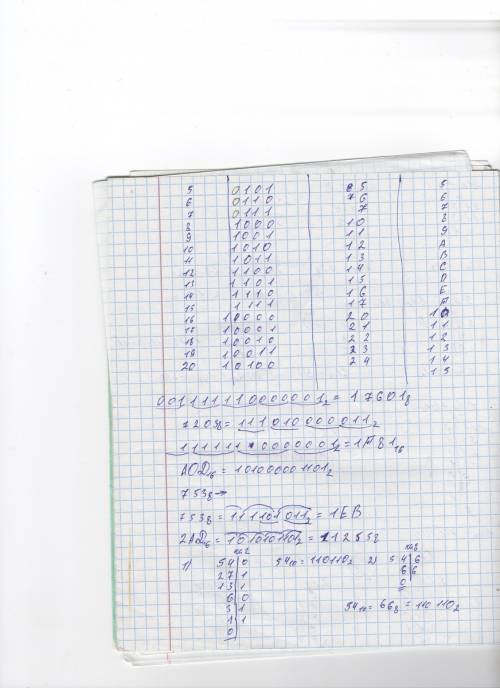 5 0101 5 5
6 0110 6 6
7 0111 7 7
8 1000 10 8
9 1001 11 9
10 1010 12 A
11 1011 13 B
12 1100 14 C
13 1101 15 D
14 1110 16 E
15 1111 17 F
16 10000 20 10
17 10001 21 11
18 10010 22 12
19 10011 23 13
20 10100 24 14
15
001111110000001₂ = 17601₈
7203₈ = 111010000011₂
1111110000001₂ = 1F81₁₆
A0D₁₆ = 101000001101₂
753₈
753₈ = 111101011₂ = 1EB
2AD₁₆ = 1010101101₂ = 1255₈
1) 54 0 54₁₀ = 110110₂ 2) 54 6
27 1 6 6
13 1 0
6 0
3 1 54₁₀ = 66₈ = 110 110₂
1 1
0